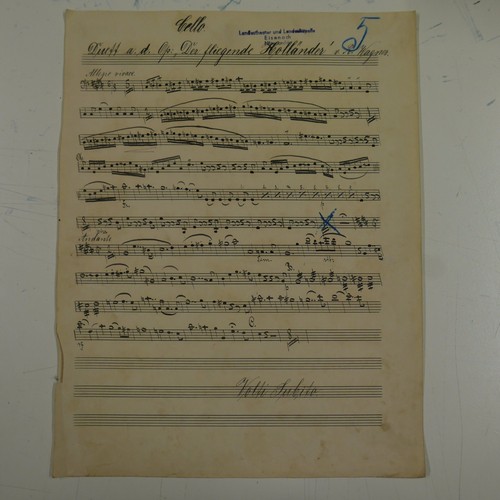 Cello
Landestheater und Landeskapelle
Eisenach
5
Duett a. d. Op. "Der fliegende Holländer" v. R. Wagner.
Allegro vivace.
Andante
B.
C.
Volti Subito